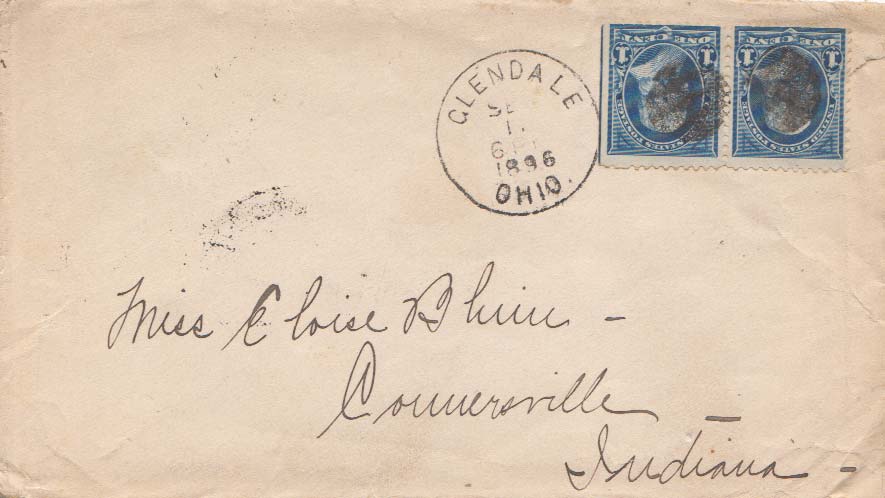 GLENDALE
SE
1
6 P
1896
OHIO.
ONE CENT
1 1
UNITED STATES POSTAGE
ONE CENT
1 1
UNITED STATES POSTAGE
Miss Eloise
Connersville
Indiana